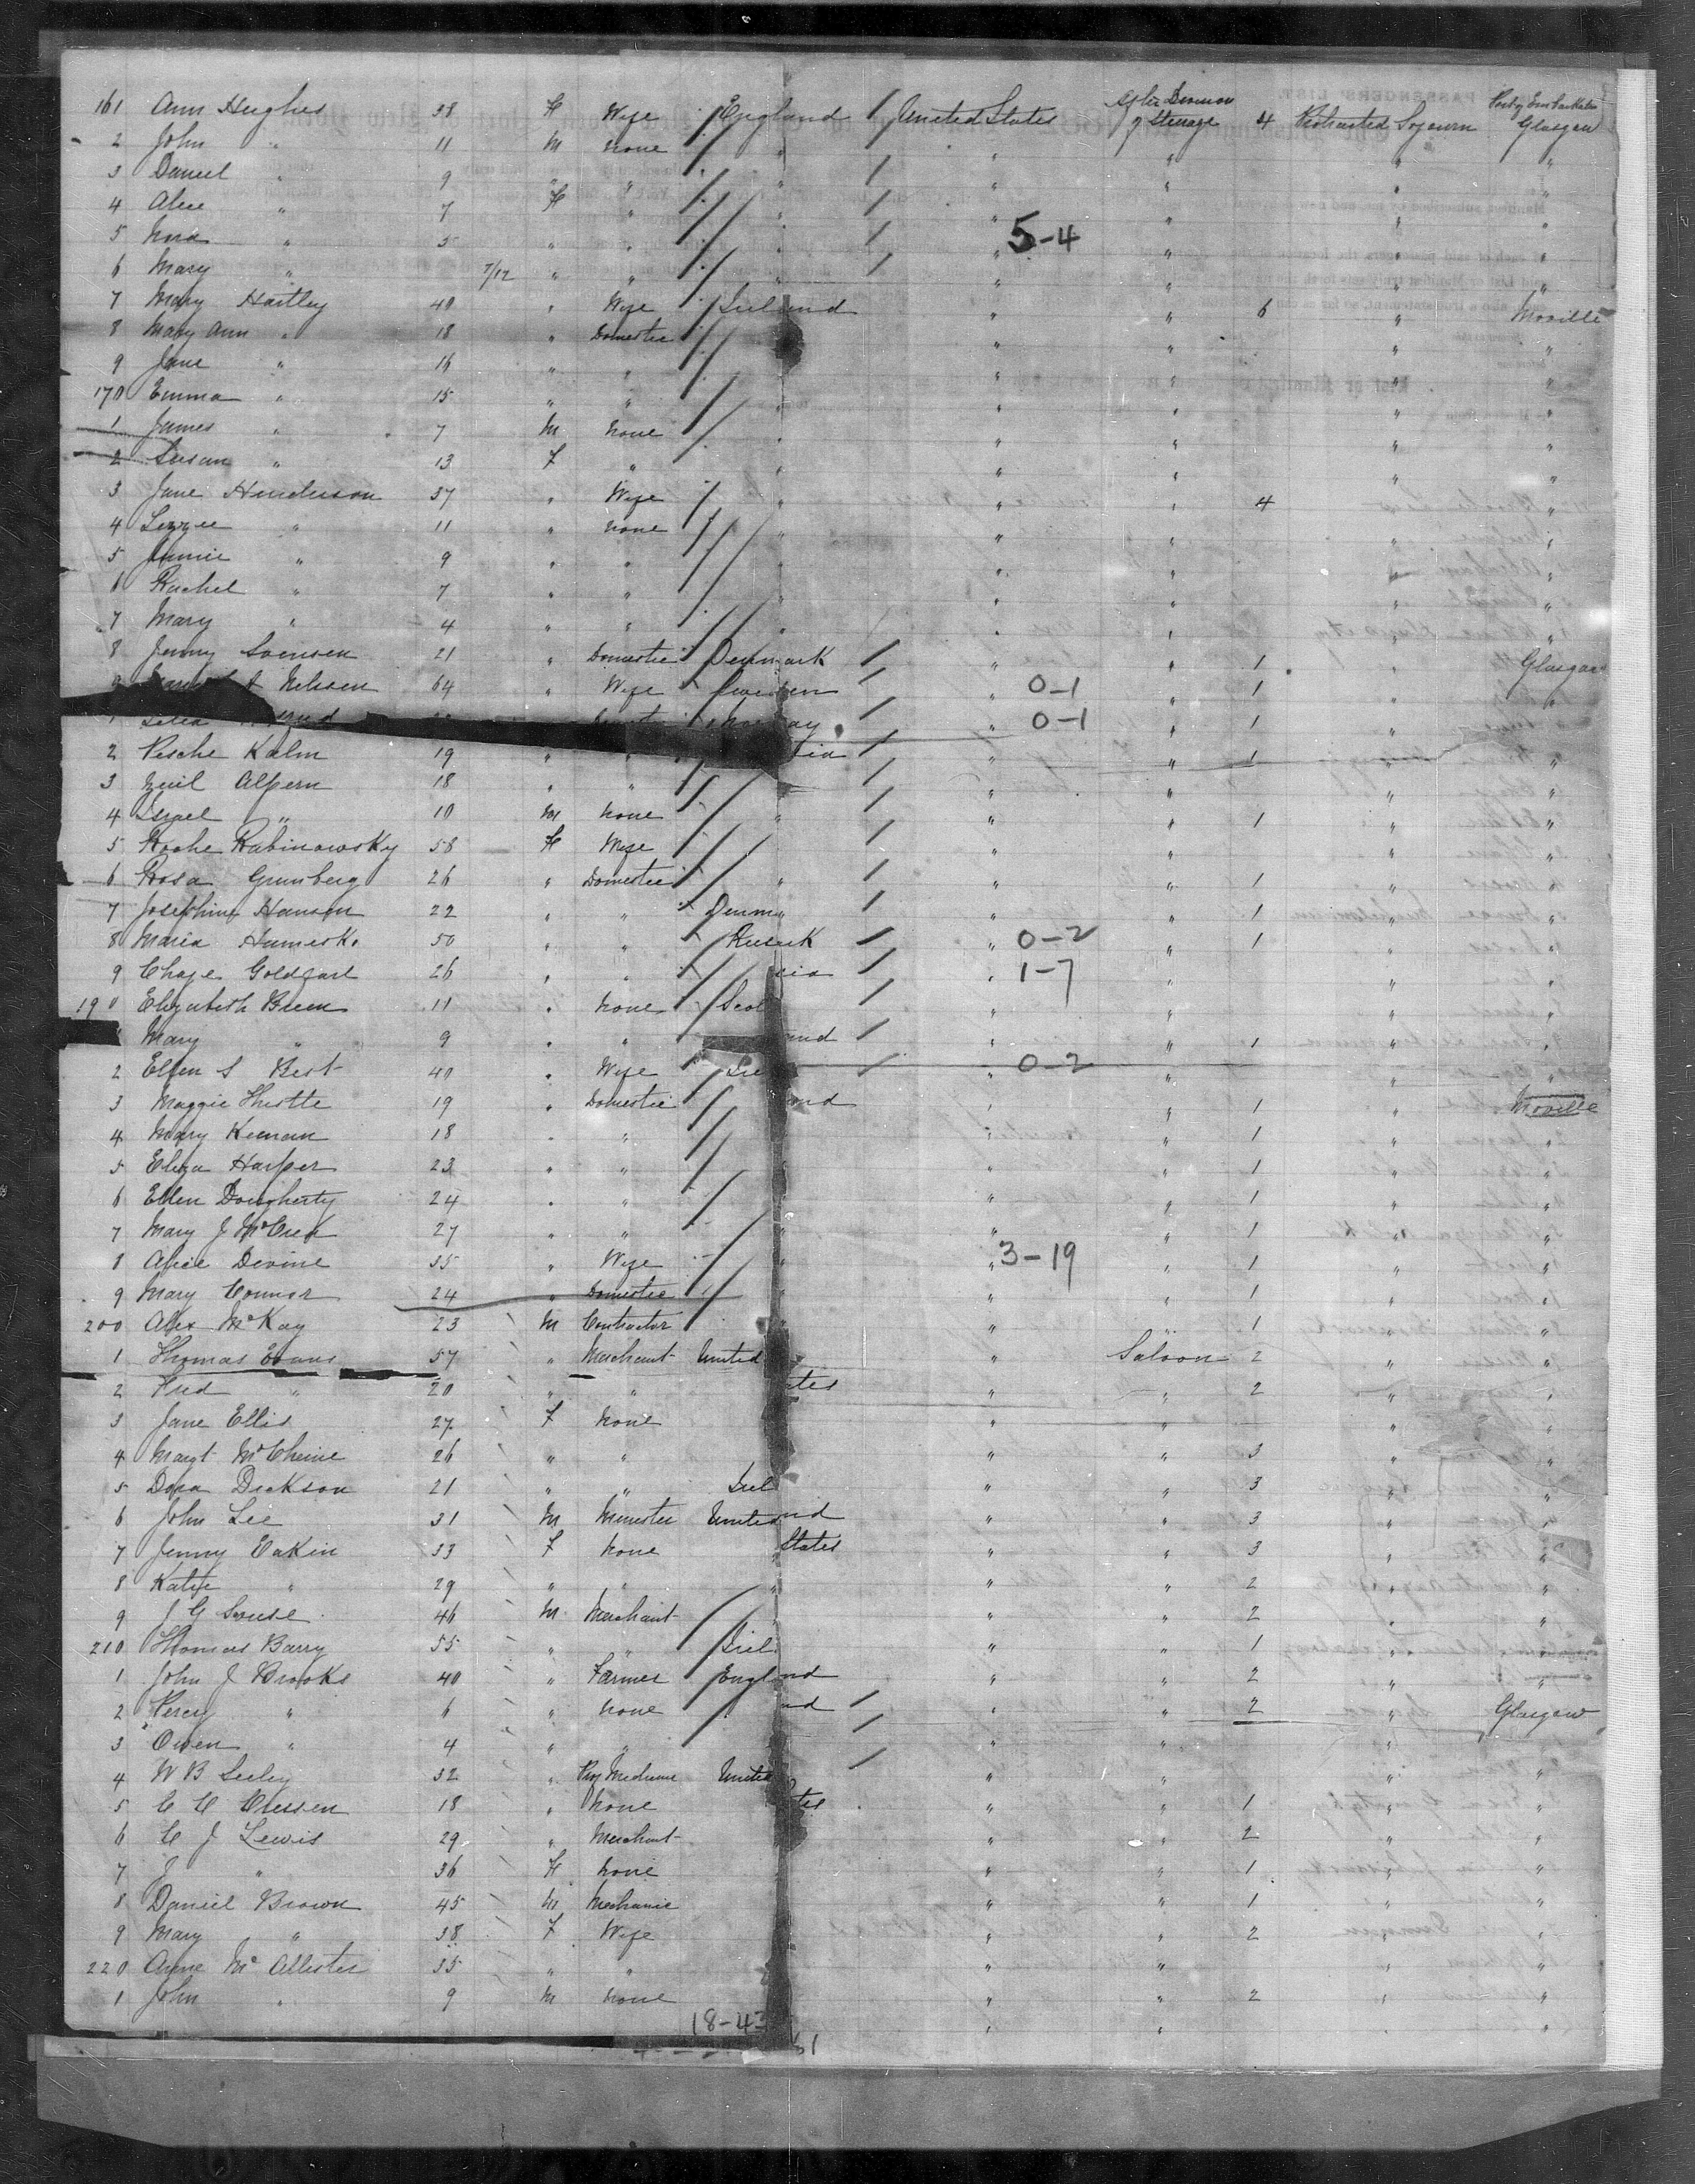 161 Ann Hughes 38 F Wife England United States After Division of Steerage 4 Protracted Sojourn Port of Embarkation Glasgow
2 John " 11 M none " " " " "
3 Daniel " 9 " " " " " " "
4 Alice " 7 F " " " " " "
5 Nora " 5 " " " " 5-4 " " "
6 Mary " 7/12 " " " " " " "
7 Mary Hartley 40 " Wife Ireland " " 6 " Moville
8 Mary Ann " 18 " Domestic " " " "
9 Jane " 16 " " " " " "
170 Emma " 15 " " " " " " "
1 James " 7 M none " " " " "
2 Susan " 13 F " " " " " "
3 Jane Henderson 37 " Wife " " " 4 " "
4 Lizzie " 11 " none " " " " "
5 " 9 " " " " " " "
6 Rachel " 7 " " " " " " "
7 Mary " 4 " " " " " " "
8 Jenny Svensen 21 " Domestic Denmark " " 1 " Glasgow
9 Nilsson 64 " Wife Sweden " 0-1 " 1 " "
1 Norway " 0-1 " 1 "
2 Pesche Kalm 19 " " " " 1 " "
3 Alpern 18 " " " " " "
4 Israel " 10 M none " " " 1 " "
5 Roche Rabinowsky 58 F Wife " " " "
6 Rosa Grunberg 26 " Domestic " " " 1 " "
7 Josephine Hansen 22 " " Denm " " 1 " "
8 Maria 50 " " " 0-2 " 1 " "
9 Chaje 26 " " " 1-7 " " "
190 Elizabeth Breen 11 " none Scot " " " "
Mary " 9 " " and " " 1 " "
2 Ellen S Best 40 " Wife Ire " 0-2 " " "
3 Maggie 19 " Domestic and " " 1 " Moville
4 Mary Keenan 18 " " " " 1 " "
5 Eliza Harper 23 " " " " 1 " "
6 Ellen Dougherty 24 " " " " 1 " "
7 Mary J 27 " " " " " 1 " "
8 Alice Devine 35 " Wife " " 3-19 " 1 " "
9 Mary Connor 24 " Domestic " " " 1 " "
200 Alex McKay 23 M Contractor " " " 1 " "
1 Thomas Evans 57 " Merchant United " Saloon 2 " "
2 Fred " 20 " " ates " " 2 " "
3 Jane Ellis 27 F none " " " "
4 Margt 26 " " " " 3 " "
5 Dora Dickson 21 " " Irel " " 3 " "
6 John Lee 31 M Minister United nd " " 3 " "
7 Jenny Eakin 33 F none States " " 3 " "
8 Katie " 29 " " " " " 2 " "
9 J G 46 M Merchant " " 2 " "
210 Thomas Barry 55 " " Irel " " 1 " "
1 John J Brooks 40 " Farmer England " " 2 " "
2 Percy " 6 " none nd " " 2 " Glasgow
3 Owen " 4 " " " " " "
4 W B Seeley 32 " Medicine United " " " "
5 C C 18 " none ates " " 1 " "
6 C J Lewis 29 " Merchant " " 2 " "
7 J " 36 F none " " 1 " "
8 Daniel Brown 45 M Mechanic " " 1 " "
9 Mary " 38 F Wife " " 2 " "
220 Annie McAllister 35 " " " " " "
1 John " 9 M none " " 2 " "
18-43